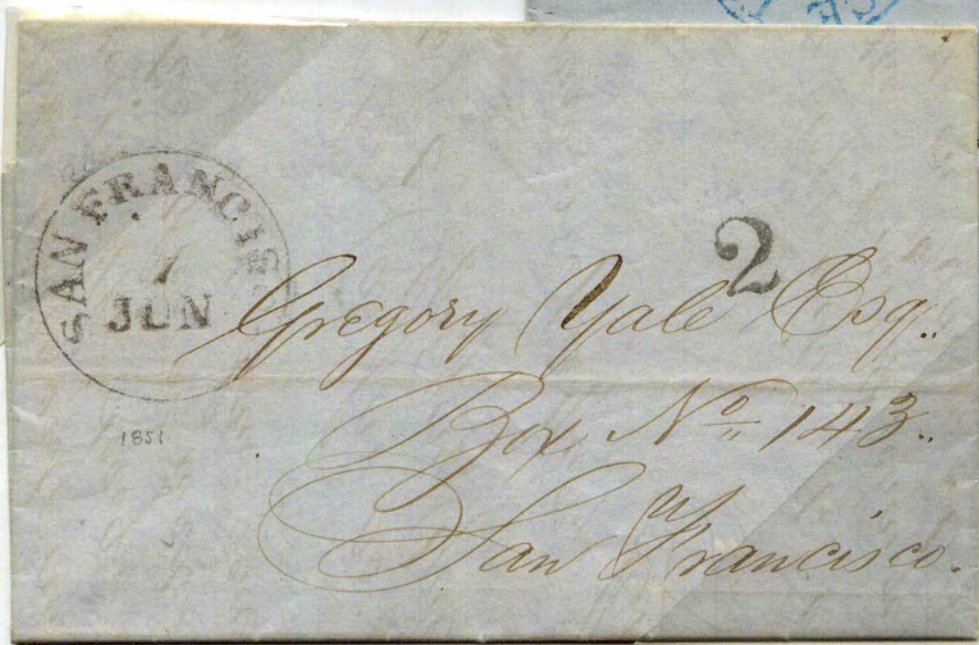 SAN FRANCISC
7
JUN
2
Gregory Yale Esq.
Box Nº 143.
San Francisco.
1851